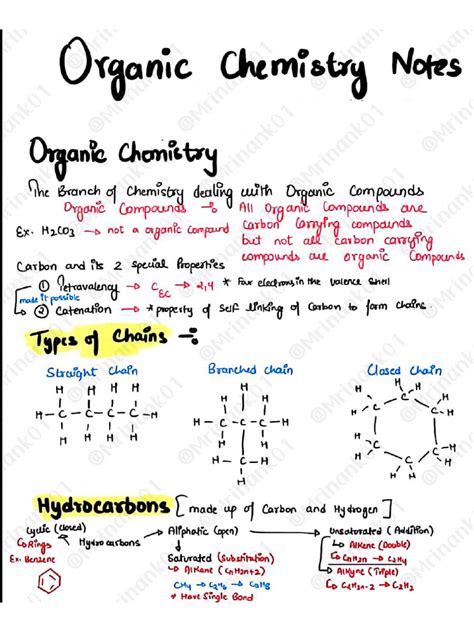 Organic Chemistry Notes
Organic Chemistry
The Branch of Chemistry dealing with Organic Compounds
Organic Compounds -: All Organic Compounds are
Ex. H2CO3 → not a organic compound Carbon Carrying compounds
but not all carbon carrying
compounds are organic Compounds
Carbon and its 2 Special Properties
① Tetravalency → C EC → 2,4 * Four electrons in the valence shell
made it possible
② Catenation → * property of self linking of Carbon to form chains.
Types of Chains -:
Straight Chain Branched chain Closed Chain
H H H H
H-C-C-C-C-H
H H H H
Hydrocarbons [made up of Carbon and Hydrogen]
Cyclic (closed) ← Hydrocarbons → Aliphatic (open) → Unsaturated (Addition)
↳ Rings
Ex. Benzene
Saturated (Substitution)
↳ Alkane (CnH2n+2)
CH4 → C2H6 → C3H8
* Have Single Bond
↳ Alkene (Double)
↳ CnH2n → C2H4
↳ Alkyne (Triple)
↳ CnH2n-2 → C2H2
@Mrinank01